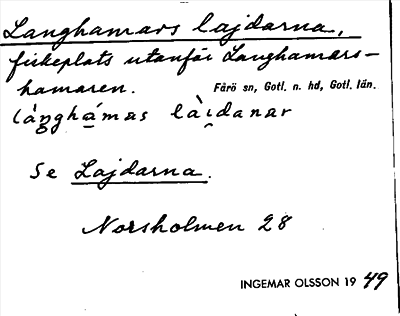 Langhamars lajdarna,
fiskeplats utanför Langhamars-
hamaren. Fårö sn, Gotl. n. hd, Gotl. län.
láŋghą̀mas làịdanar
Se Lajdarna.
Norsholmen 28
INGEMAR OLSSON 1949